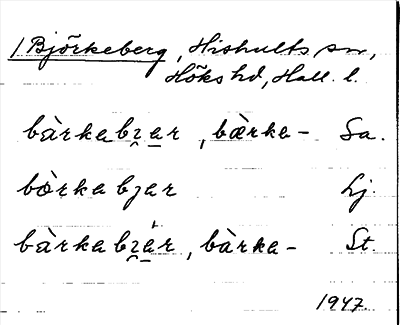 / Björkeberg, Hishults sn,
Höks hd, Hall. l.
bàrkabʒ̯a̲r, bæ̀rka- Sa.
bòrkabʒar Lj.
bàrkabʒ̯á̲r, bàrka- St.
1947.